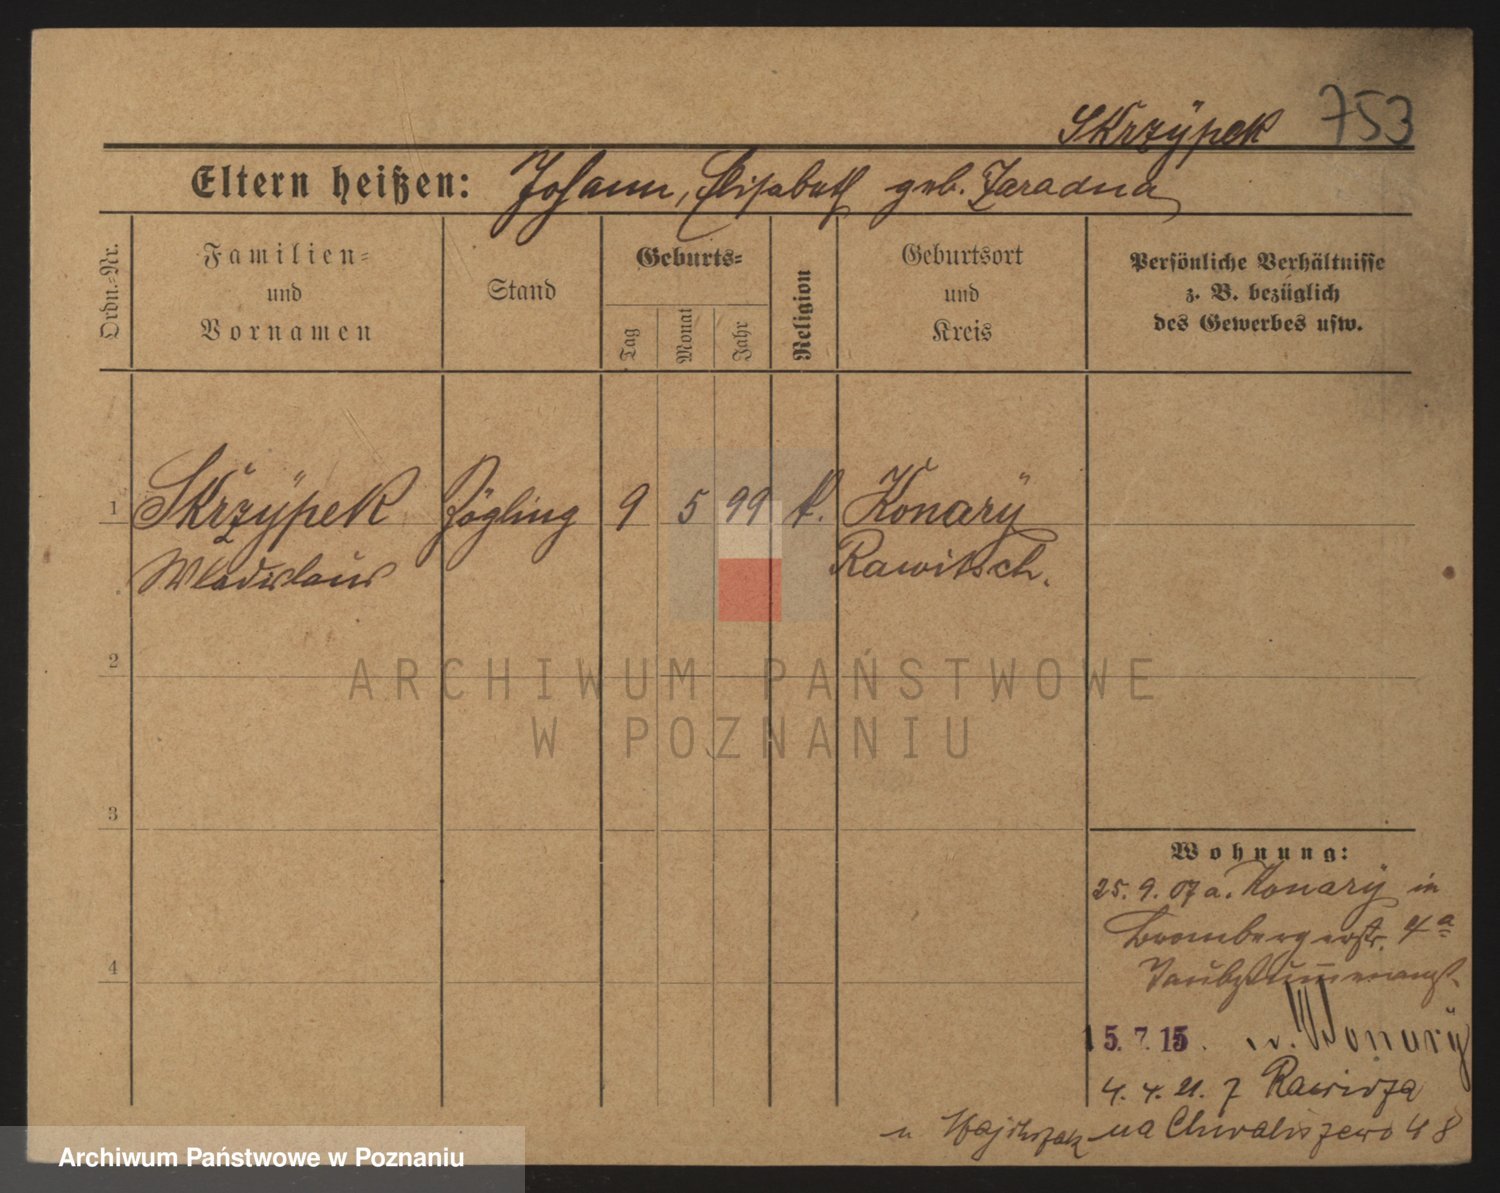 Skrzÿpek 753
Eltern heißen: Johann, Elisabeth geb. Zaradna
Ordn.-Nr.
Familien-
und
Vornamen
Stand
Geburts-
Tag
Monat
Jahr
Religion
Geburtsort
und
Kreis
Persönliche Verhältnisse
z. B. bezüglich
des Gewerbes usw.
1 Skrzÿpek Zögling 9 5 99 k. Konarÿ
Wladislaus Rawitsch.
2
3
4
ARCHIWUM PAŃSTWOWE
W POZNANIU
Wohnung:
25. 9. 07 a. Konarÿ in
Brombergerstr. 4a
Taubstummenanst.
15. 7. 15. n. Konarÿ
4. 4. 21. z Rawicza
na Chwaliszewo 48
Archiwum Państwowe w Poznaniu